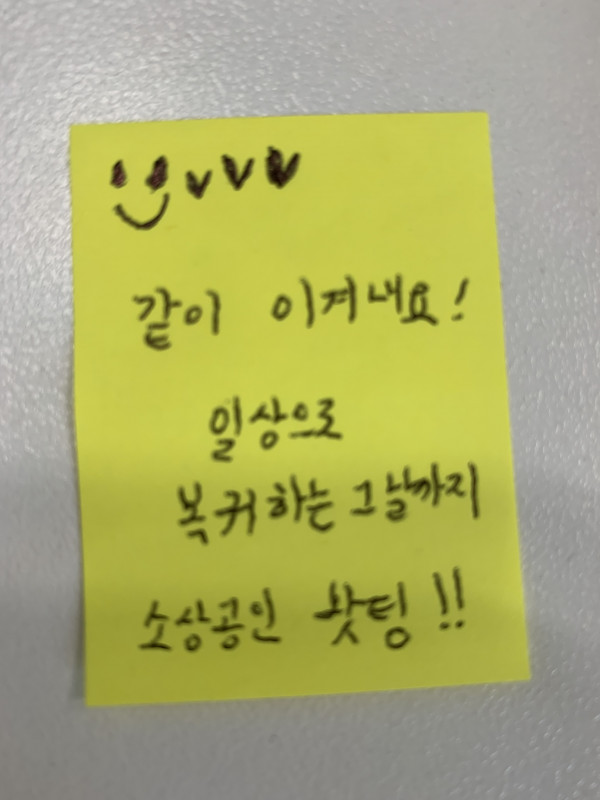 같이 이겨내요!
일상으로
복귀하는 그날까지
소상공인 홧팅!!